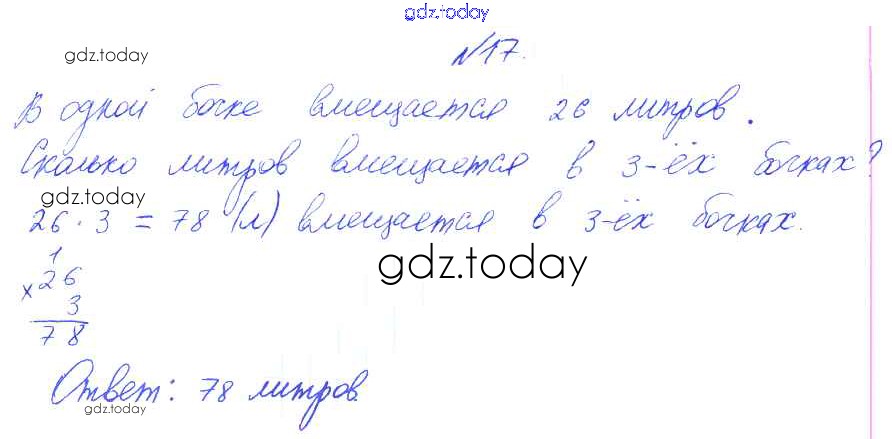 gdz.today
gdz.today
N17.
В одной бочке вмещается 26 литров.
Сколько литров вмещается в 3-ёх бочках?
gdz.today
26 · 3 = 78 (л) вмещается в 3-ёх бочках.
1
× 26
3
78
gdz.today
Ответ: 78 литров.
gdz.today